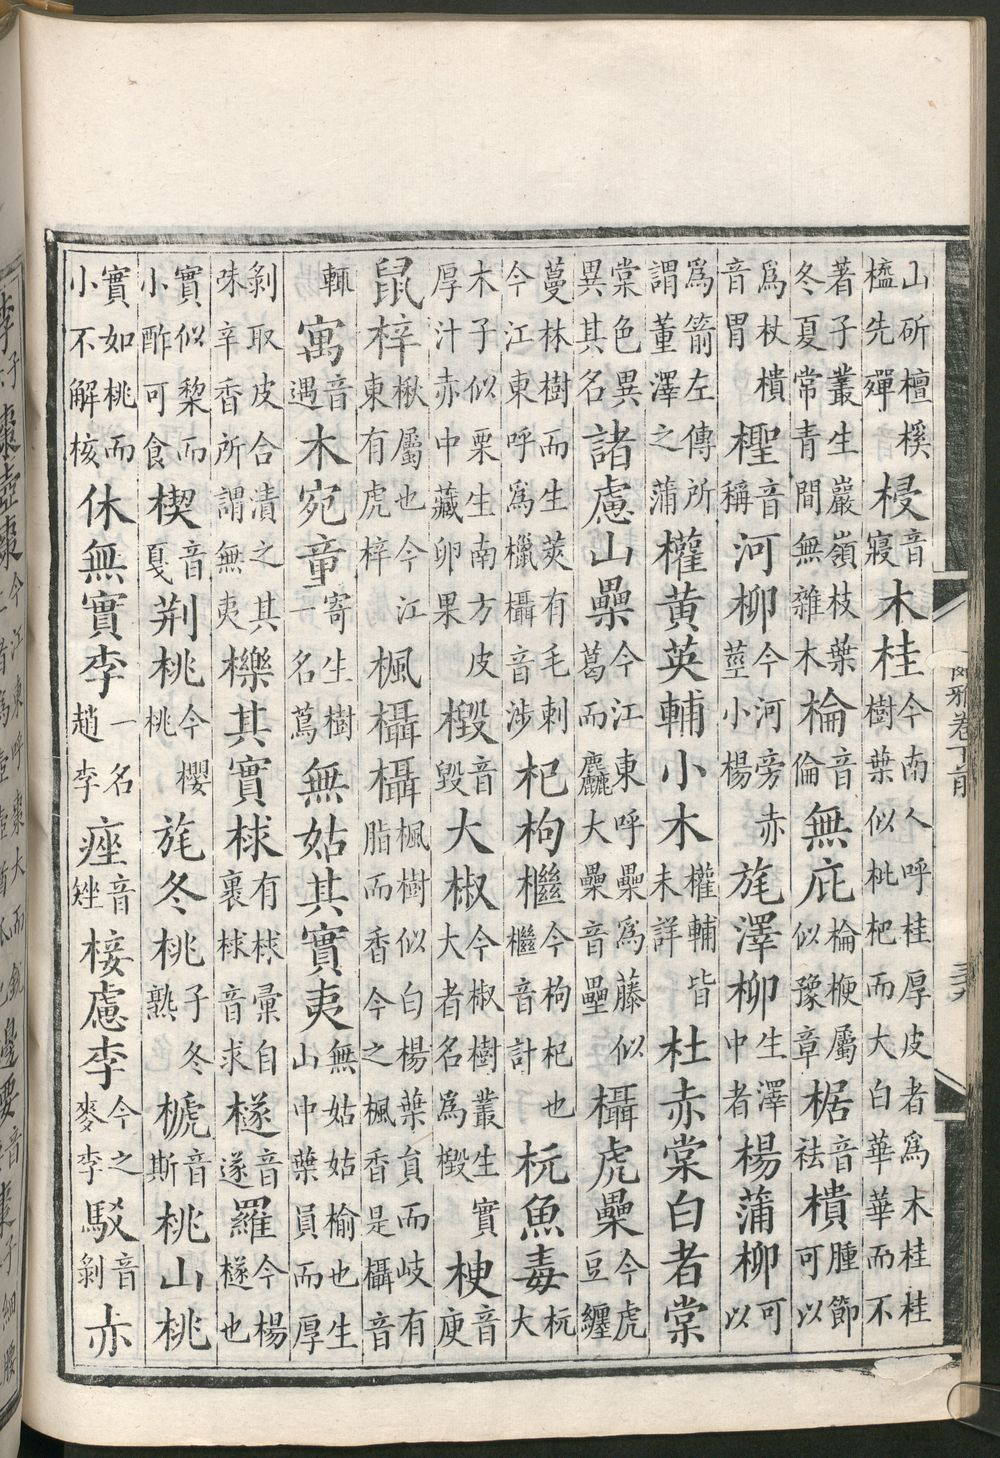 山斫檀榽榼先殫梫音寢木桂今南人呼桂厚皮者爲木桂桂樹葉似枇杷而大白華華而不
著子叢生巖嶺枝葉冬夏常青間無雜木棆音倫無庛棆楩屬似豫章椐音祛樻腫節可以
爲杖樻音胃檉音稱河柳今河旁赤莖小楊旄澤柳生澤中者楊蒲柳可以
爲箭左傳所謂董澤之蒲權黃英輔小木權輔皆未詳杜赤棠白者棠
棠色異異其名諸慮山櫐今江東呼櫐爲藤似葛而麤大櫐音壘欇虎櫐今虎豆纏
蔓林樹而生莢有毛刺今江東呼爲㯿欇音涉杞枸檵今枸杞也檵音計杬魚毒杬大
木子似栗生南方皮厚汁赤中藏卵果檓音毀大椒今椒樹叢生實大者名爲檓楰音庾
鼠梓楸屬也今江東有虎梓楓欇欇楓樹似白楊葉員而岐有脂而香今之楓香是欇音
輒寓音遇木宛童寄生樹一名蔦無姑其實夷無姑姑榆也生山中葉員而厚
剝取皮合漬之其味辛香所謂無夷櫟其實梂有梂彙自裹梂音求檖音遂羅今楊檖也
實似棃而小酢可食楔音戛荆桃今櫻桃旄冬桃子冬熟榹音斯桃山桃
實如桃而小不解核休無實李一名趙李痤音矬椄慮李今之麥李駁音剝赤
爾雅卷下前